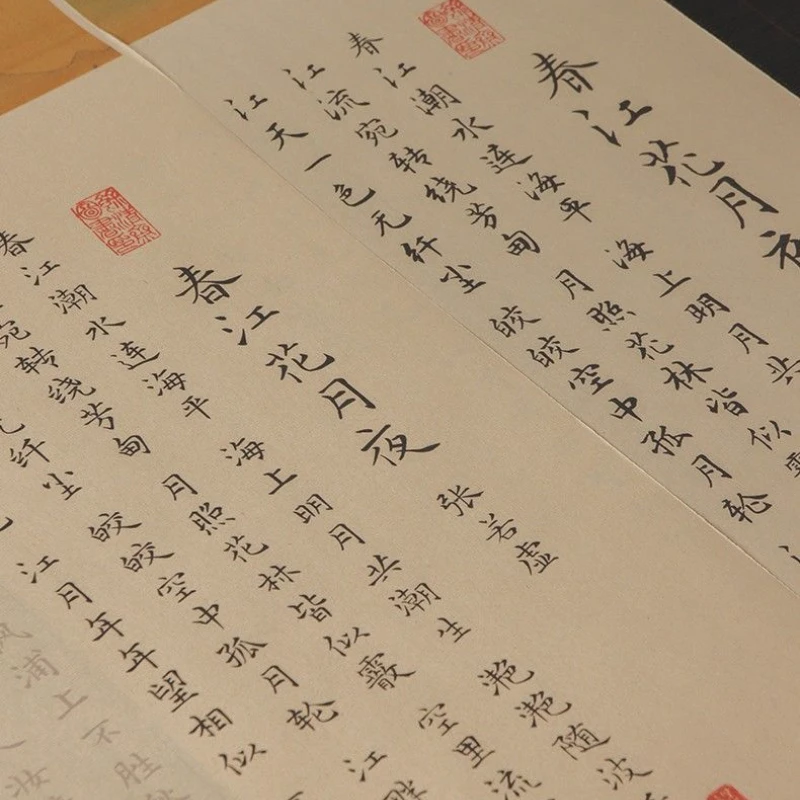 春江花月夜
春江潮水连海平 海上明月共
江流宛转绕芳甸 月照花林皆似霰
江天一色无纤尘 皎皎空中孤月轮
春江花月夜
张若虚
春江潮水连海平 海上明月共潮生 滟滟随波
宛转绕芳甸 月照花林皆似霰 空里流
纤尘 皎皎空中孤月轮 江畔
江月年年望相似
浦上不胜
妆